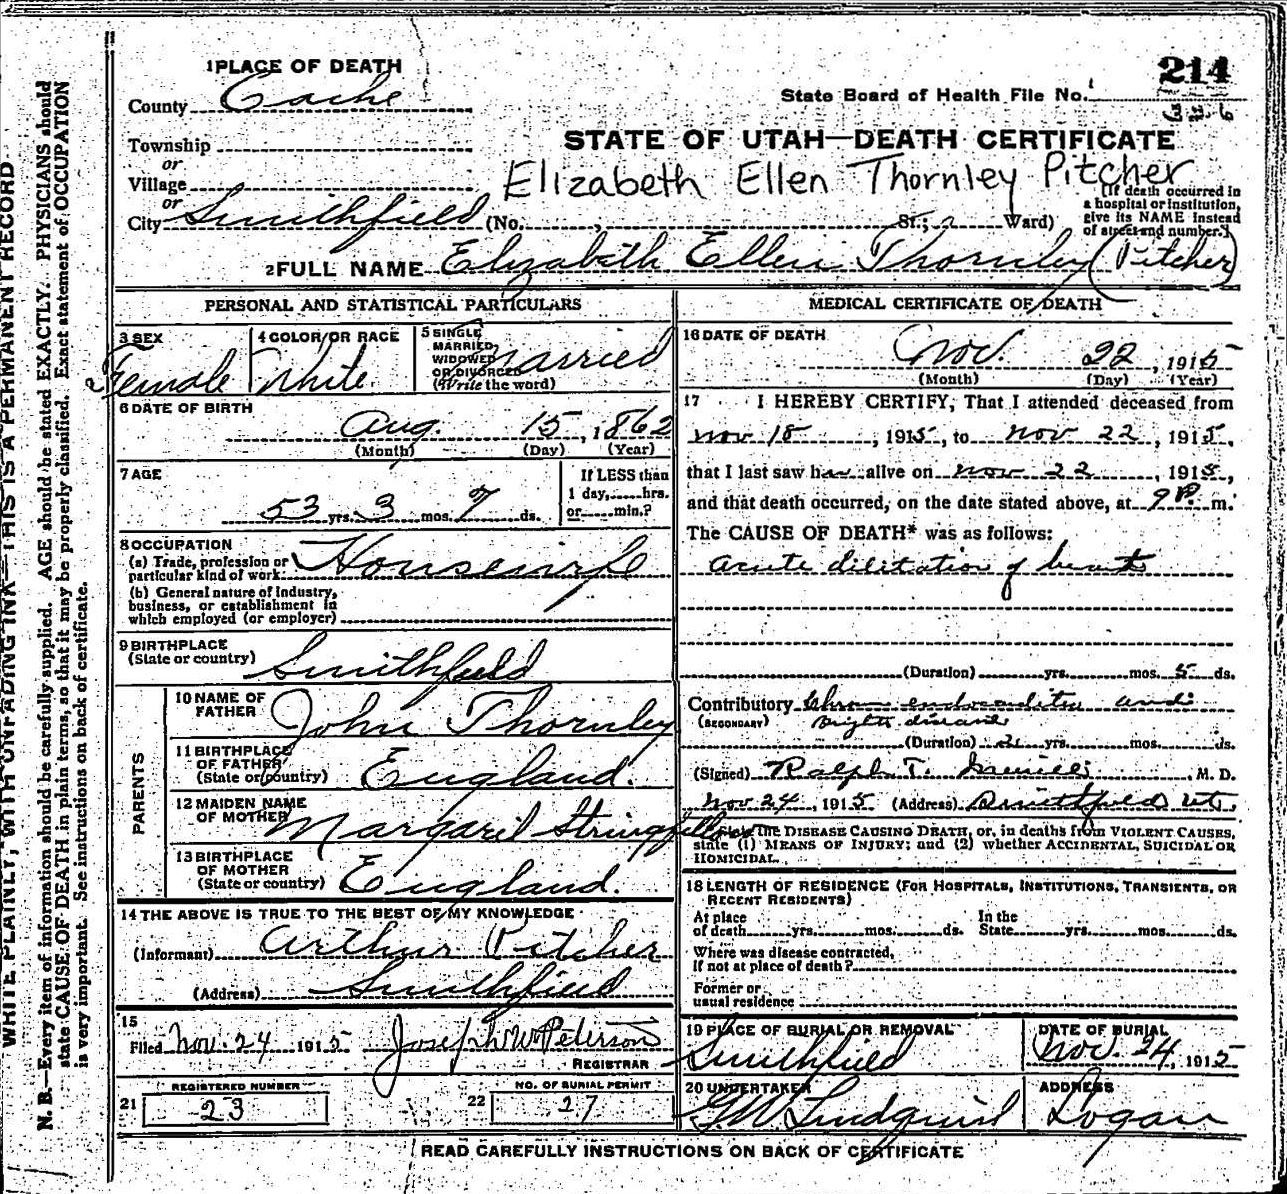 WRITE PLAINLY, WITH UNFADING INK—THIS IS A PERMANENT RECORD
N. B.—Every item of information should be carefully supplied. AGE should be stated EXACTLY. PHYSICIANS should
state CAUSE OF DEATH in plain terms, so that it may be properly classified. Exact statement of OCCUPATION
is very important. See instructions on back of certificate.
1 PLACE OF DEATH
County Cache
Township
or
Village
or
City Smithfield (No. , St.; 2 Ward)
214
State Board of Health File No.
STATE OF UTAH—DEATH CERTIFICATE
Elizabeth Ellen Thornley Pitcher
(If death occurred in
a hospital or institution,
give its NAME instead
of street and number.)
2 FULL NAME Elizabeth Ellen Thornley (Pitcher)
PERSONAL AND STATISTICAL PARTICULARS
3 SEX
Female
4 COLOR OR RACE
White
5 SINGLE
MARRIED,
WIDOWED
OR DIVORCED
(Write the word)
Married
6 DATE OF BIRTH
Aug. 15, 1862
(Month) (Day) (Year)
7 AGE
53 yrs. 3 mos. 7 ds.
If LESS than
1 day, hrs.
or min.?
8 OCCUPATION
(a) Trade, profession or
particular kind of work
Housewife
(b) General nature of industry,
business, or establishment in
which employed (or employer)
9 BIRTHPLACE
(State or country) Smithfield
PARENTS
10 NAME OF
FATHER John Thornley
11 BIRTHPLACE
OF FATHER
(State or country) England.
12 MAIDEN NAME
OF MOTHER Margaret Stringfellow
13 BIRTHPLACE
OF MOTHER
(State or country) England.
14 THE ABOVE IS TRUE TO THE BEST OF MY KNOWLEDGE
(Informant) Arthur Pitcher
(Address) Smithfield
15
Filed Nov. 24 1915 Joseph W. Peterson
REGISTRAR
REGISTERED NUMBER
21 23
NO. OF BURIAL PERMIT
22 27
MEDICAL CERTIFICATE OF DEATH
16 DATE OF DEATH
Nov. 22, 1915
(Month) (Day) (Year)
17 I HEREBY CERTIFY, That I attended deceased from
Nov 18, 1915, to Nov 22, 1915,
that I last saw her alive on Nov 22, 1915,
and that death occurred, on the date stated above, at 9 P. m.
The CAUSE OF DEATH* was as follows:
Acute dilitation of heart
(Duration) yrs. mos. 5 ds.
Contributory Chron endocarditis and
(SECONDARY) Brights disease
(Duration) 2 yrs. mos. ds.
(Signed) Ralph T. M. D.
Nov 24, 1915 (Address) Smithfield Ut.
State the DISEASE CAUSING DEATH, or, in deaths from VIOLENT CAUSES,
state (1) MEANS OF INJURY; and (2) whether ACCIDENTAL, SUICIDAL OR
HOMICIDAL.
18 LENGTH OF RESIDENCE (FOR HOSPITALS, INSTITUTIONS, TRANSIENTS, OR
RECENT RESIDENTS)
At place
of death yrs. mos. ds.
In the
State yrs. mos. ds.
Where was disease contracted,
if not at place of death?
Former or
usual residence
19 PLACE OF BURIAL OR REMOVAL
Smithfield
DATE OF BURIAL
Nov. 24, 1915
20 UNDERTAKER
G.W. Lindquist
ADDRESS
Logan
READ CAREFULLY INSTRUCTIONS ON BACK OF CERTIFICATE